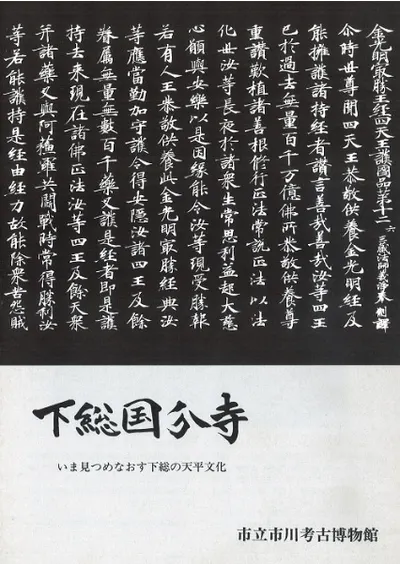 金光明㝡勝王經四天王護國品第十二 六 三蔵法師義淨奉 制譯
尒時世尊聞四天王恭敬供養金光明經及
能擁護諸持經者讃言善哉善哉汝等四王
已於過去無量百千万億佛所恭敬供養尊
重讃歎植諸善根修行正法常説正法以法
化世汝等長夜於諸衆生常思利益起大慈
心願與安樂以是因縁能令汝等現受勝報
若有人王恭敬供養此金光明㝡勝經典汝
等應當勤加守護令得安隠汝諸四王及餘
眷屬無量無數百千藥叉護是經者即是護
持去來現在諸佛正法汝等四王及餘天衆
并諸藥叉與阿蘓羅共闘戰時常得勝利汝
等若能護持是經由經力故能除衆苦怨賊
下総国分寺
いま見つめなおす下総の天平文化
市立市川考古博物館